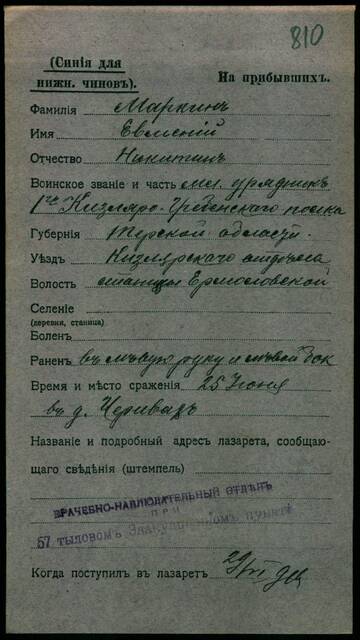 810
(Синія для
нижн. чиновъ).
На прибывшихъ.
Фамилія Маркинъ
Имя Евменій
Отчество Никитинъ
Воинское званіе и часть мл. урядникъ
1го Кизляро-Гребенского полка
Губернія Терской области.
Уѣздъ Кизлярскаго отдѣла
Волость станицы Ермоловской
Селеніе
(деревня, станица)
Боленъ
Раненъ въ лѣвую руку и лѣвой бок
Время и мѣсто сраженія 25 Іюня
въ д.
Названіе и подробный адресъ лазарета, сообщаю-
щаго свѣдѣнія (штемпель)
ВРАЧЕБНО-НАБЛЮДАТЕЛЬНЫЙ ОТДѢЛЪ
ПРИ
57 тыловомъ Эвакуаціонномъ пунктѣ
Когда поступилъ въ лазаретъ 29/VI